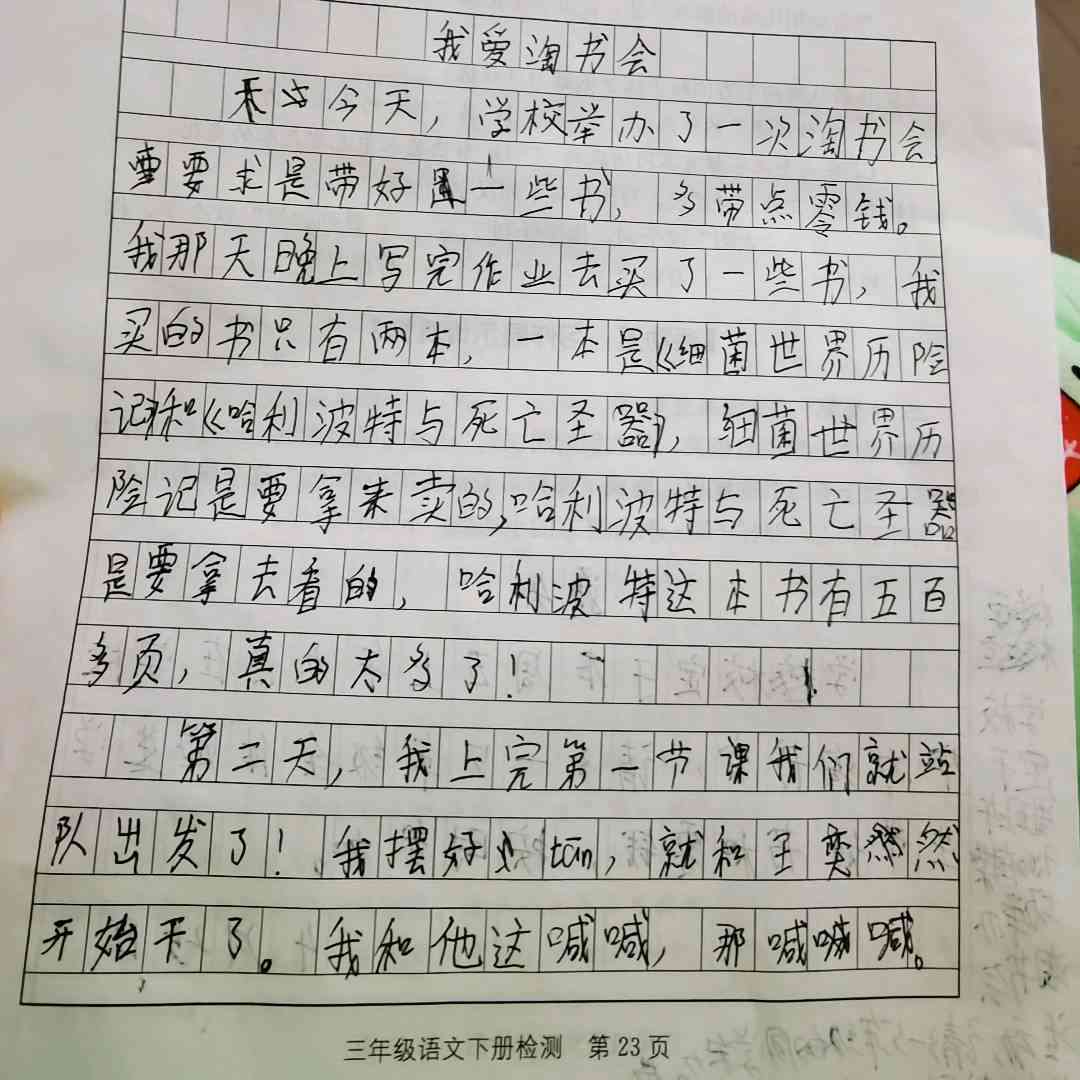 我爱淘书会
今天，学校举办了一次淘书会
要求是带好一些书，多带点零钱。
我那天晚上写完作业去买了一些书，我
买的书只有两本，一本是《细菌世界历险
记》和《哈利波特与死亡圣器》，细菌世界历
险记是要拿来卖的，哈利波特与死亡圣器
是要拿去看的，哈利波特这本书有五百
多页，真的太多了！
第二天，我上完第一节课我们就站
队出发了！我摆好小tān，就和王奕然
开始干了。我和他这喊喊，那喊喊。
三年级语文下册检测 第23页